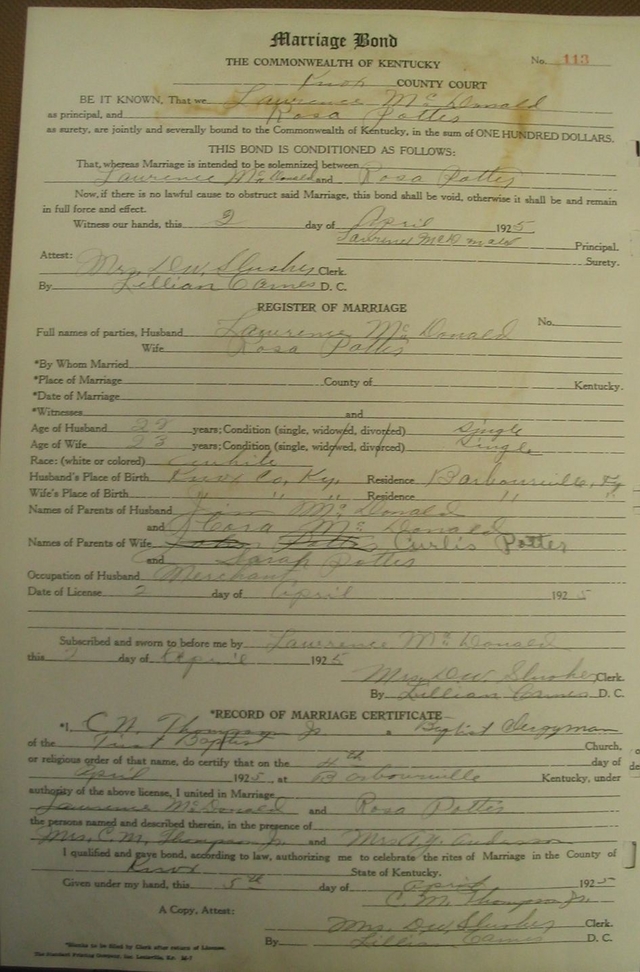 Marriage Bond
THE COMMONWEALTH OF KENTUCKY
No. 113
Knox COUNTY COURT
BE IT KNOWN, That we Lawrence McDonald
as principal, and Rosa Potter
as surety, are jointly and severally bound to the Commonwealth of Kentucky, in the sum of ONE HUNDRED DOLLARS.
THIS BOND IS CONDITIONED AS FOLLOWS:
That, whereas Marriage is intended to be solemnized between
Lawrence McDonald and Rosa Potter
Now, if there is no lawful cause to obstruct said Marriage, this bond shall be void, otherwise it shall be and remain
in full force and effect.
Witness our hands, this 2 day of April 1925
Lawrence McDonald Principal.
Surety.
Attest: Mrs. D.W. Slusher Clerk.
By Lillian D. C.
REGISTER OF MARRIAGE
No.
Full names of parties, Husband Lawrence McDonald
Wife Rosa Potter
*By Whom Married
*Place of Marriage County of Kentucky.
*Date of Marriage
*Witnesses and
Age of Husband 28 years; Condition (single, widowed, divorced) Single
Age of Wife 23 years; Condition (single, widowed, divorced) Single
Race: (white or colored) white
Husband's Place of Birth Knox Co, Ky. Residence Barbourville, Ky
Wife's Place of Birth " " " Residence "
Names of Parents of Husband Jim McDonald
and Cora McDonald
Names of Parents of Wife John Potter Curtis Potter
and Sarah Potter
Occupation of Husband Merchant
Date of License 2 day of April 1925
Subscribed and sworn to before me by Lawrence McDonald
this 2 day of April 1925
Mrs. D.W. Slusher Clerk.
By Lillian D. C.
*RECORD OF MARRIAGE CERTIFICATE
*I, C. M. Thompson Jr. a Baptist Clergyman
of the First Baptist Church,
or religious order of that name, do certify that on the 4th day of
April 1925, at Barbourville Kentucky, under
authority of the above license, I united in Marriage
Lawrence McDonald and Rosa Potter
the persons named and described therein, in the presence of
Mrs. C. M. Thompson Jr. and Mrs. A. Y. Anderson
I qualified and gave bond, according to law, authorizing me to celebrate the rites of Marriage in the County of
Knox State of Kentucky.
Given under my hand, this 5th day of April 1925
C. M. Thompson Jr.
A Copy, Attest:
Mrs. D.W. Slusher Clerk.
By Lillian D. C.
*Blanks to be filled by Clerk after return of License.